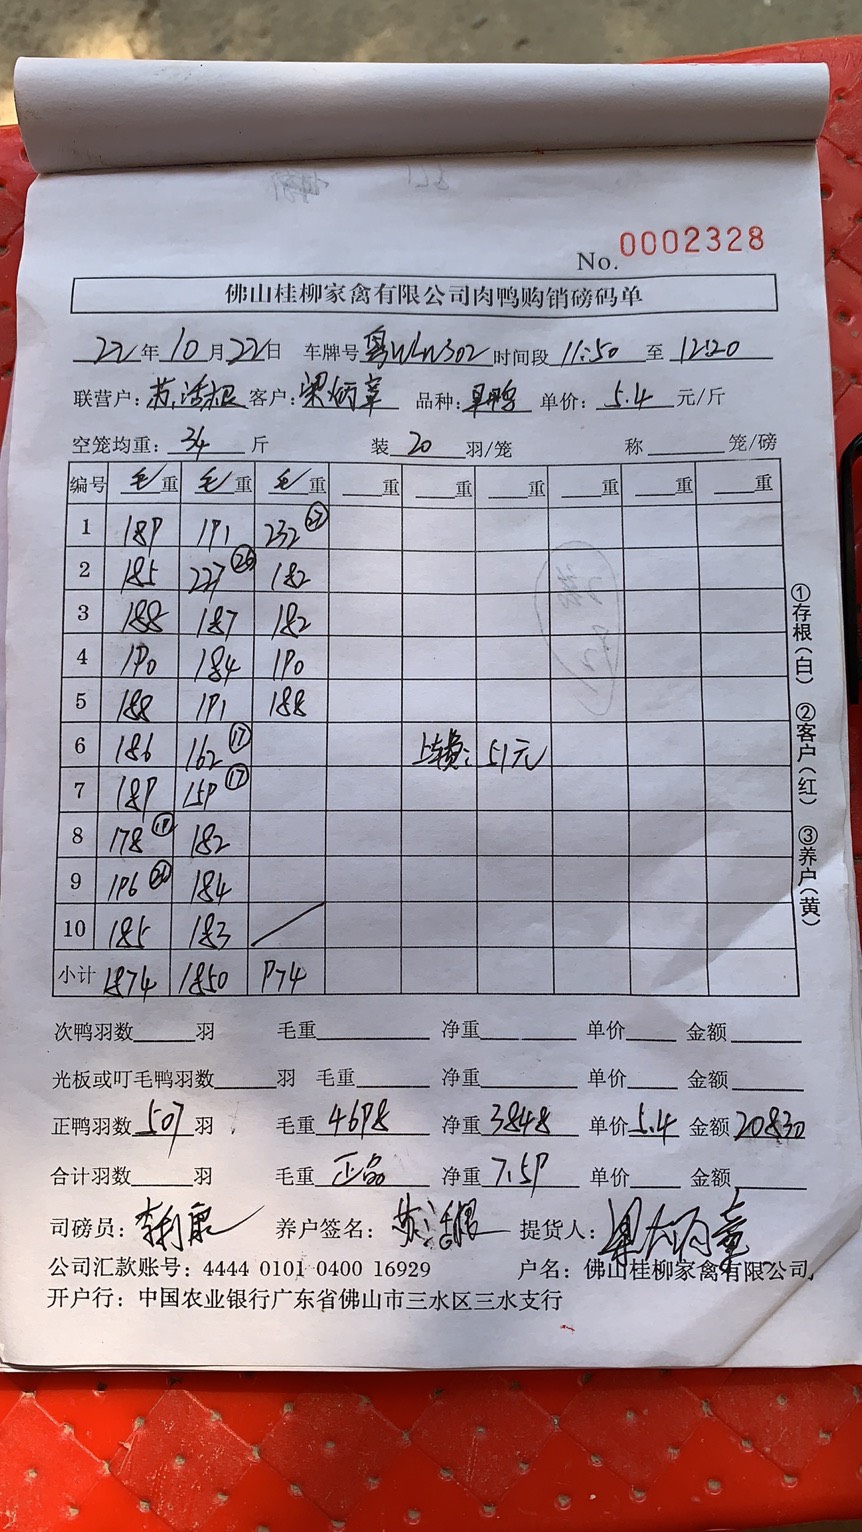 No. 0002328
佛山桂柳家禽有限公司肉鸭购销磅码单
22年10月22日 车牌号 时间段11:50至12:20
联营户:苏活根 客户:梁炳章 品种: 单价:5.4元/斤
空笼均重:34斤 装20羽/笼 称 笼/磅
编号 毛重 毛重 毛重 重 重 重 重 重 重
1 189 191 232 ㉗
2 185 227 ㉖ 182
3 188 187 182
4 190 184 190
5 188 191 188
6 186 162 ⑰ 上车费:51元
7 189 159 ⑰
8 178 ⑲ 182
9 196 ㉑ 184
10 185 183
小计 1874 1850 974
次鸭羽数 羽 毛重 净重 单价 金额
光板或叮毛鸭羽数 羽 毛重 净重 单价 金额
正鸭羽数507羽 毛重4698 净重3848 单价5.4 金额20830
合计羽数 羽 毛重 正品 净重7.59 单价 金额
司磅员:李利康 养户签名:苏活根 提货人:梁炳章
公司汇款账号:4444 0101 0400 16929 户名:佛山桂柳家禽有限公司
开户行:中国农业银行广东省佛山市三水区三水支行
①存根(白) ②客户(红) ③养户(黄)